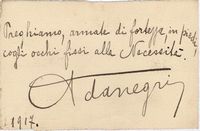 Preghiamo, armate di fortezza, in piedi,
cogli occhi fissi alla Necessità!
Adanegri
1917.